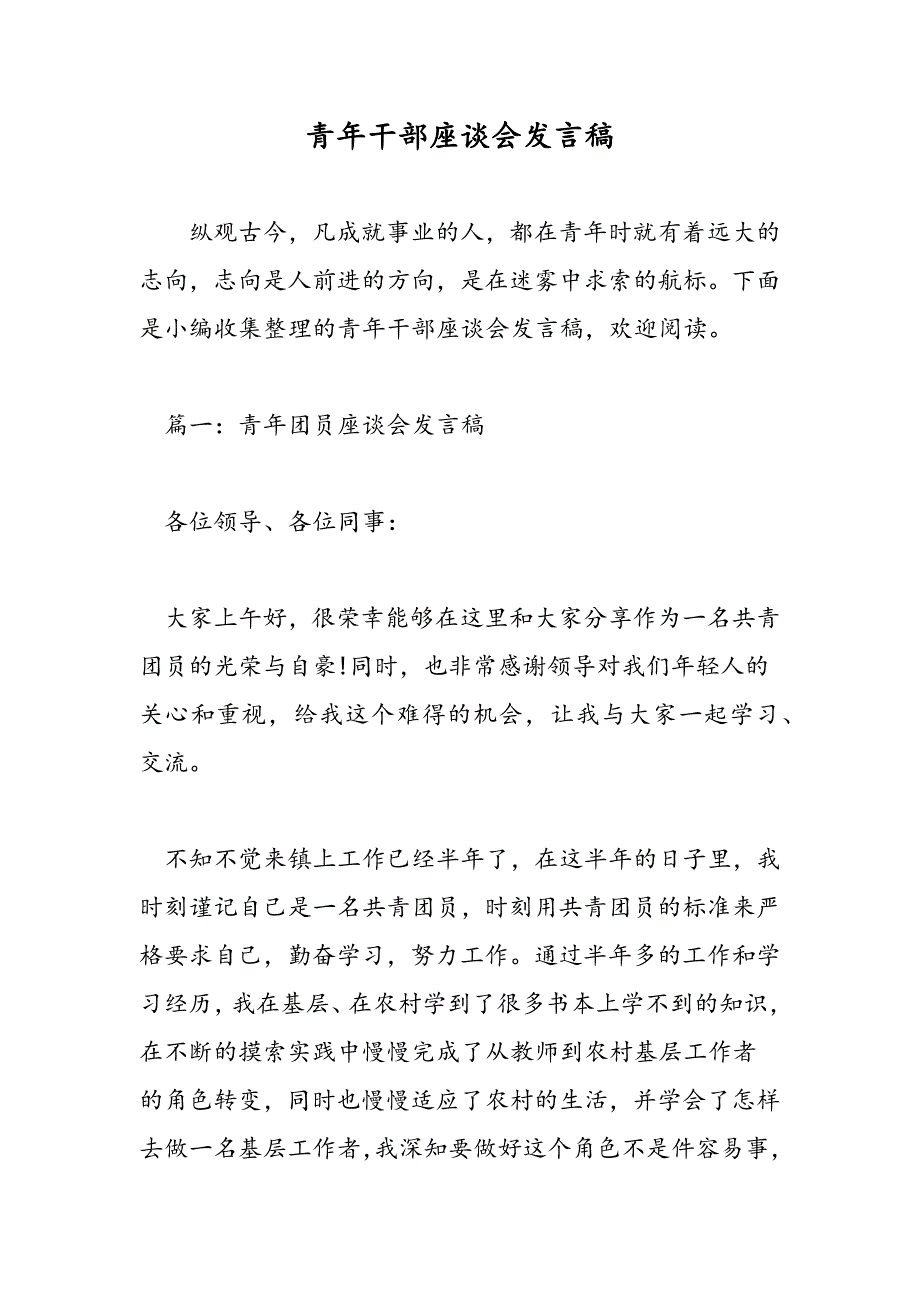 青年干部座谈会发言稿
纵观古今，凡成就事业的人，都在青年时就有着远大的
志向，志向是人前进的方向，是在迷雾中求索的航标。下面
是小编收集整理的青年干部座谈会发言稿，欢迎阅读。
篇一：青年团员座谈会发言稿
各位领导、各位同事：
大家上午好，很荣幸能够在这里和大家分享作为一名共青
团员的光荣与自豪!同时，也非常感谢领导对我们年轻人的
关心和重视，给我这个难得的机会，让我与大家一起学习、
交流。
不知不觉来镇上工作已经半年了，在这半年的日子里，我
时刻谨记自己是一名共青团员，时刻用共青团员的标准来严
格要求自己，勤奋学习，努力工作。通过半年多的工作和学
习经历，我在基层、在农村学到了很多书本上学不到的知识，
在不断的摸索实践中慢慢完成了从教师到农村基层工作者
的角色转变，同时也慢慢适应了农村的生活，并学会了怎样
去做一名基层工作者，我深知要做好这个角色不是件容易事，